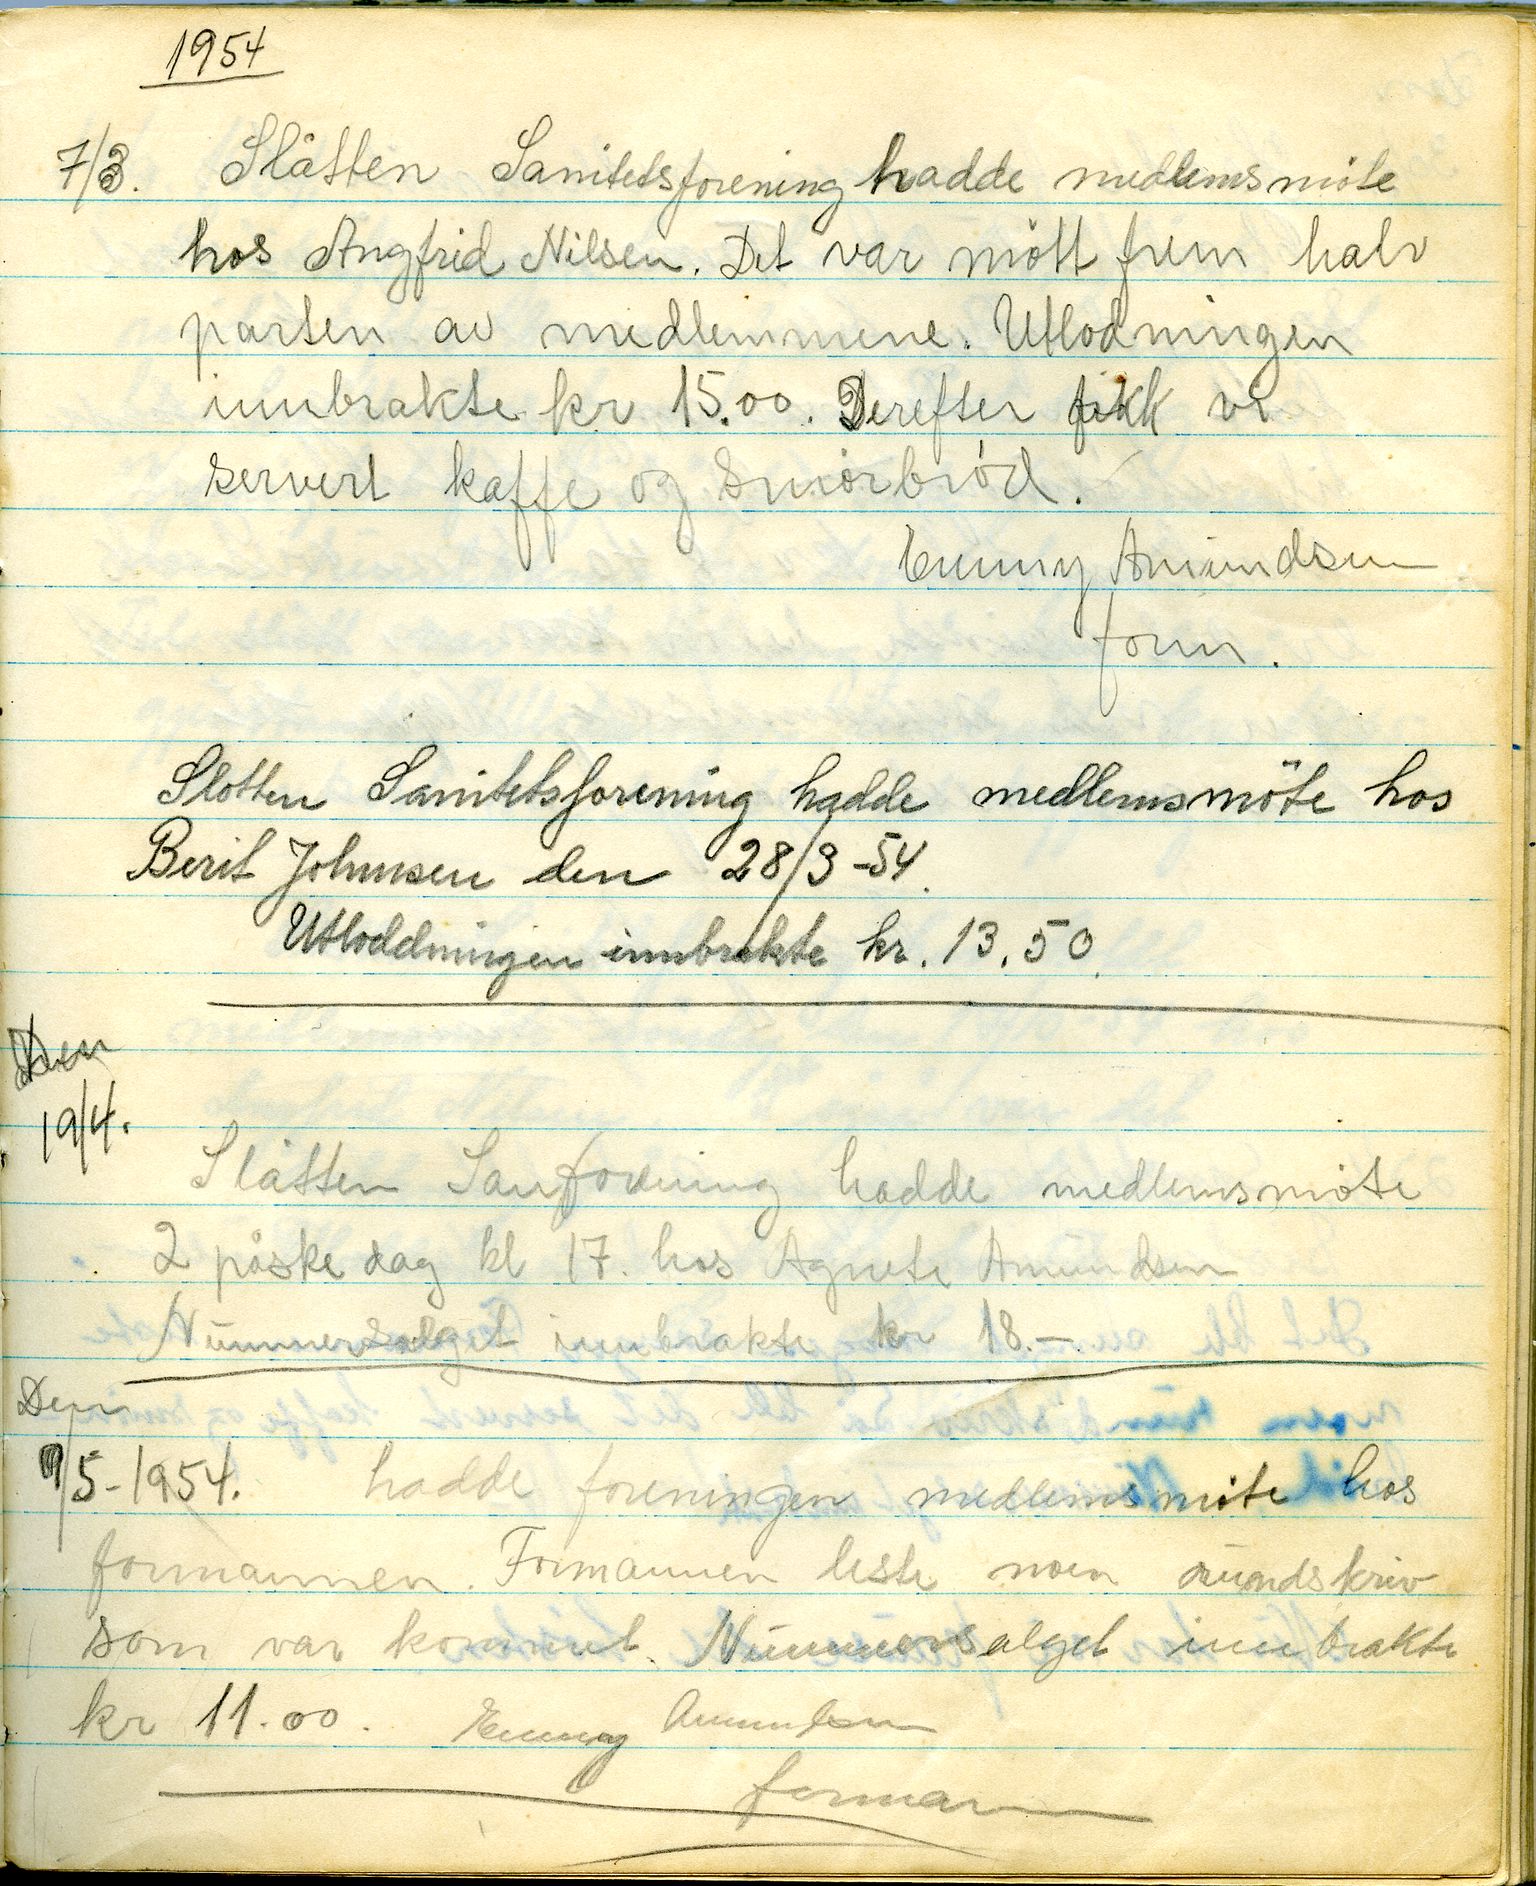 1954
7/3. Slåtten Sanitetsforening hadde medlemsmöte
hos Angfrid Nilsen. Det var mött frem halv
parten av medlemmene. Utlodningen
innbrakte kr 15.00. Derefter fikk vi
servert kaffe og smörbröd.
Emmy Amundsen
form.
Slotten Sanitetsforening hadde medlemsmöte hos
Berit Johnsen den 28/3-54.
Utloddningen innbrakte kr. 13.50.
Den
19/4.
Slåtten Sanforening hadde medlemsmöte
2 påske dag kl 17. hos Agnete Amundsen
Nummersalget innbrakte kr 18.-
Den
9/5-1954. hadde foreningen medlemsmöte hos
formannen. Formannen leste noen rundskriv
som var kommet. Nummersalget innbrakte
kr 11.00. Emmy Amundsen
formann